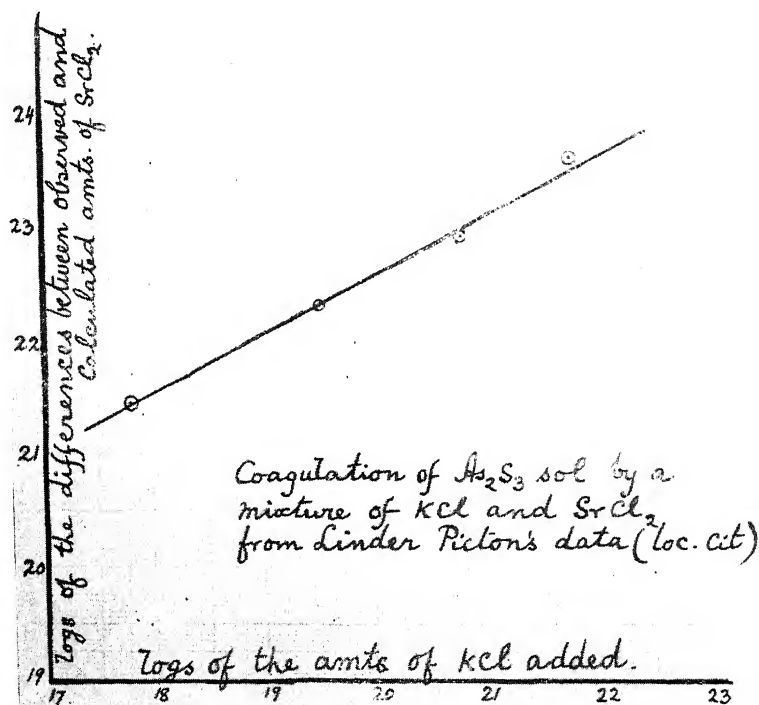 logs of the differences between observed and
Calculated amts. of SrCl2.
24
23
22
21
20
19
Coagulation of As2S3 sol by a
mixture of KCl and SrCl2
from Linder Picton's data (loc. cit)
logs of the amts of KCl added.
17 18 19 20 21 22 23